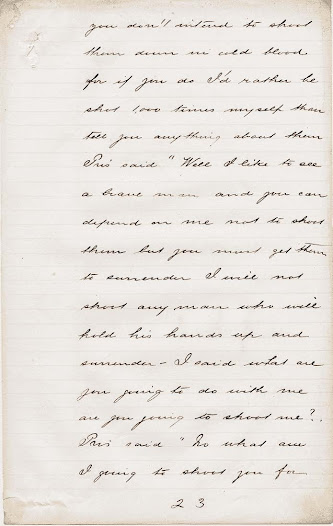 you don't intend to shoot
them down in cold blood
for if you do I'd rather be
shot 1,000 times myself than
tell you anything about them
Pris said "Well I like to see
a brave man and you can
depend on me not to shoot
them but you must get them
to surrender I will not
shoot any man who will
hold his hands up and
surrender - I said what are
you going to do with me
are you going to shoot me?.
Pris said "No what am
I going to shoot you for
23